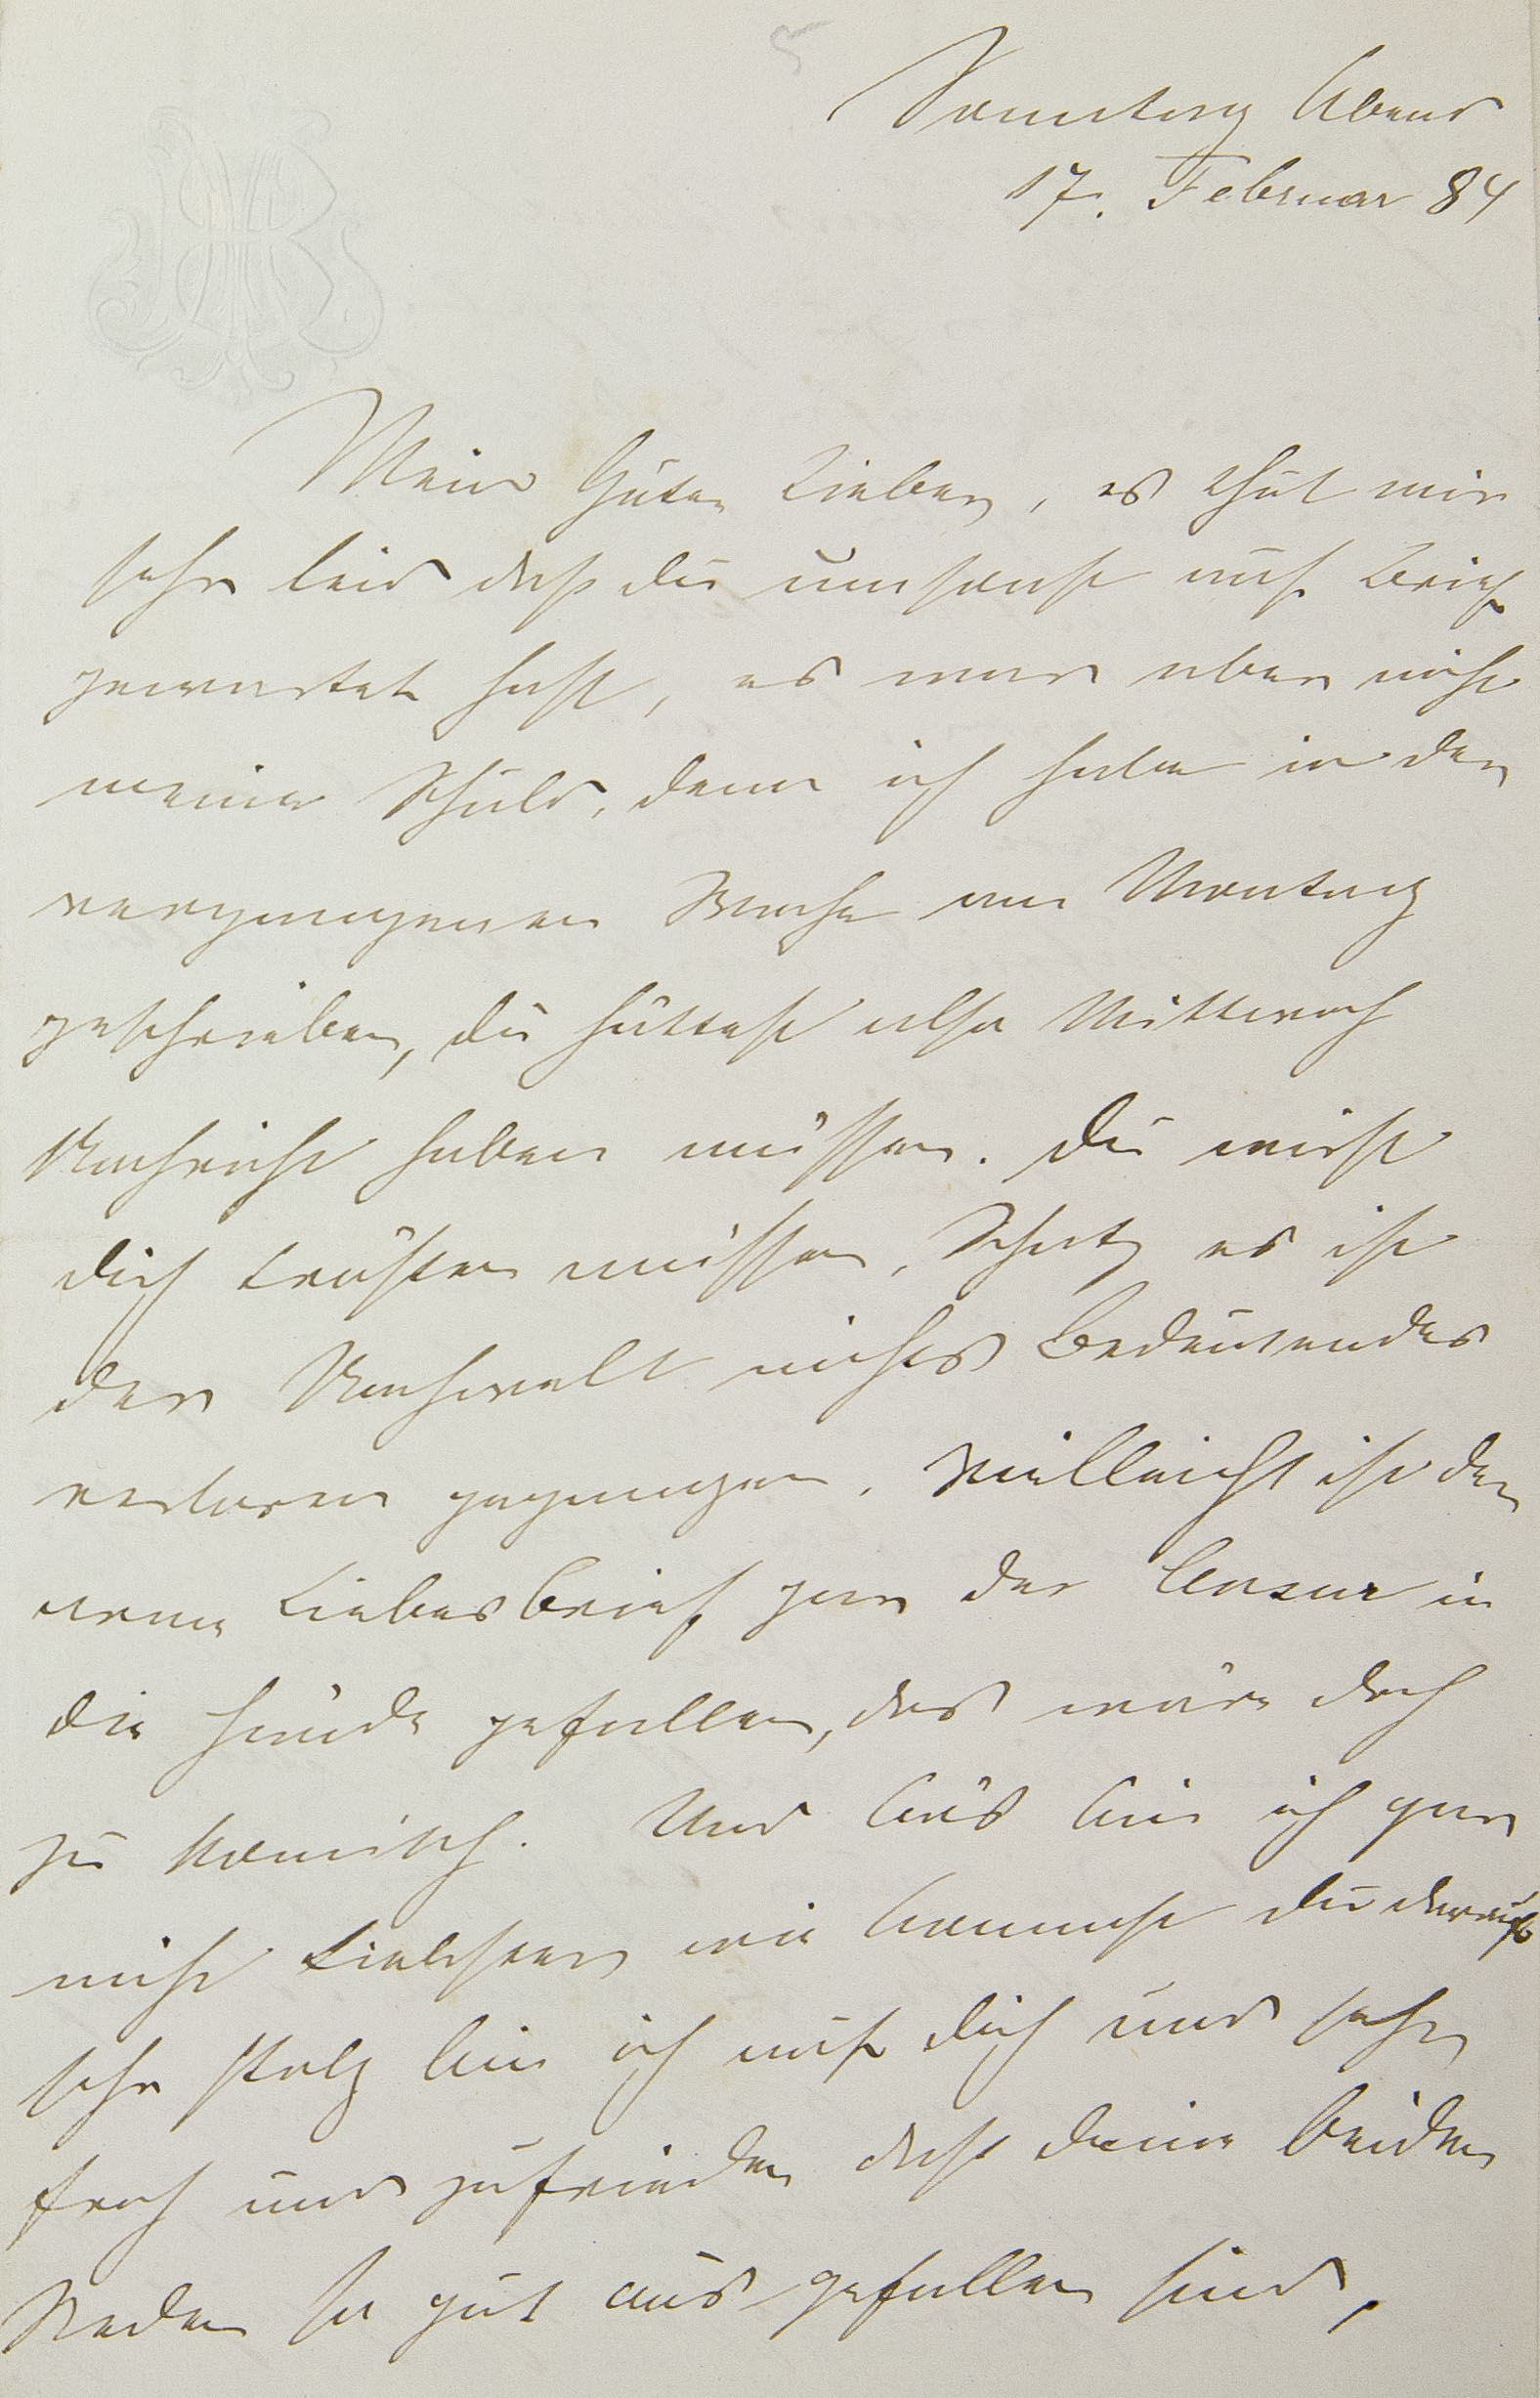 5
Sonntag Abend
17. Februar 84
Mein Guter Lieber, es thut mir
sehr leid daß du umsonst auf Brief
gewartet hast, es war aber nicht
meine Schuld, denn ich habe in der
vergangenen Woche am Montag
geschrieben, du hättest also Mittwoch
Nachricht haben müssen. Du wirst
dich trösten müssen, Schatz es ist
der Nachwelt nichts Bedeutendes
verloren gegangen. Vielleicht ist der
arme Liebesbrief gar der Censur in
die Hände gefallen, das wäre doch
zu komisch. Und bös bin ich gar
nicht Liebster, wie kommst du darauf
sehr stolz bin ich auf dich und sehr
froh und zufrieden daß deine beiden
Reden so gut ausgefallen sind,